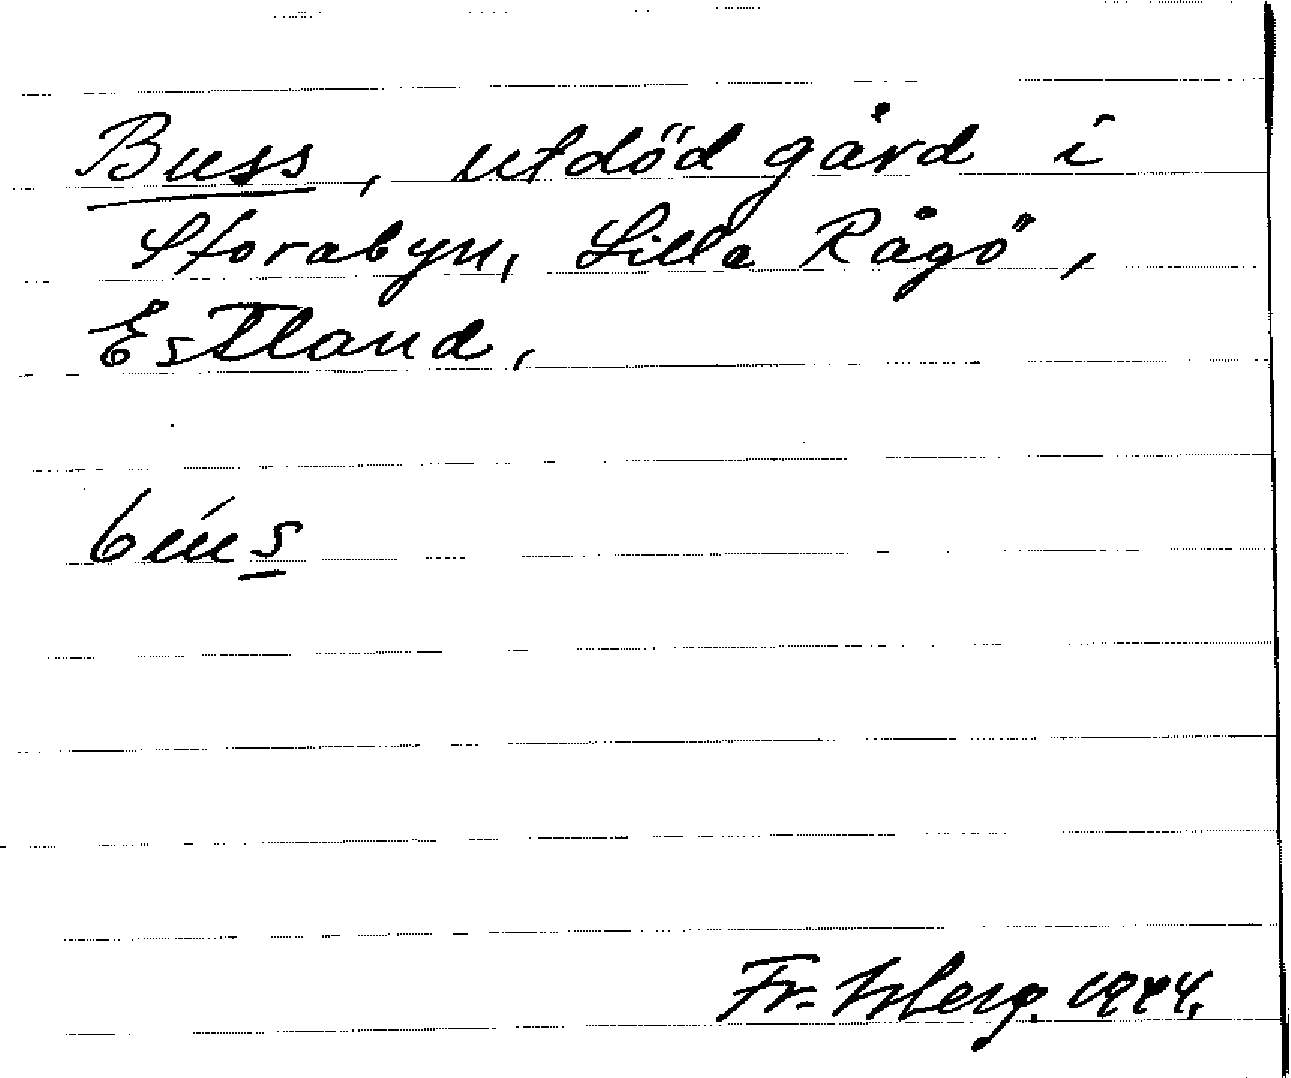 Buss, utdöd gård i
Storabyn, Lilla Rågö,
Estland.
bús
Fr. 1944.